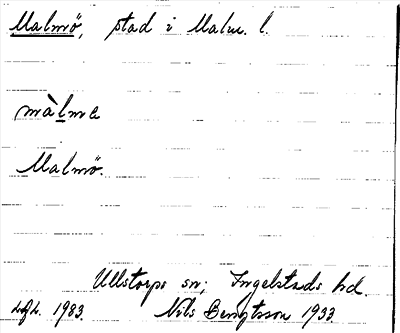 Malmö, stad i Malm. l.
màlme
Malmö.
Ullstorps sn; Ingelstads hd.
1983. Nils Bengtsson 1933